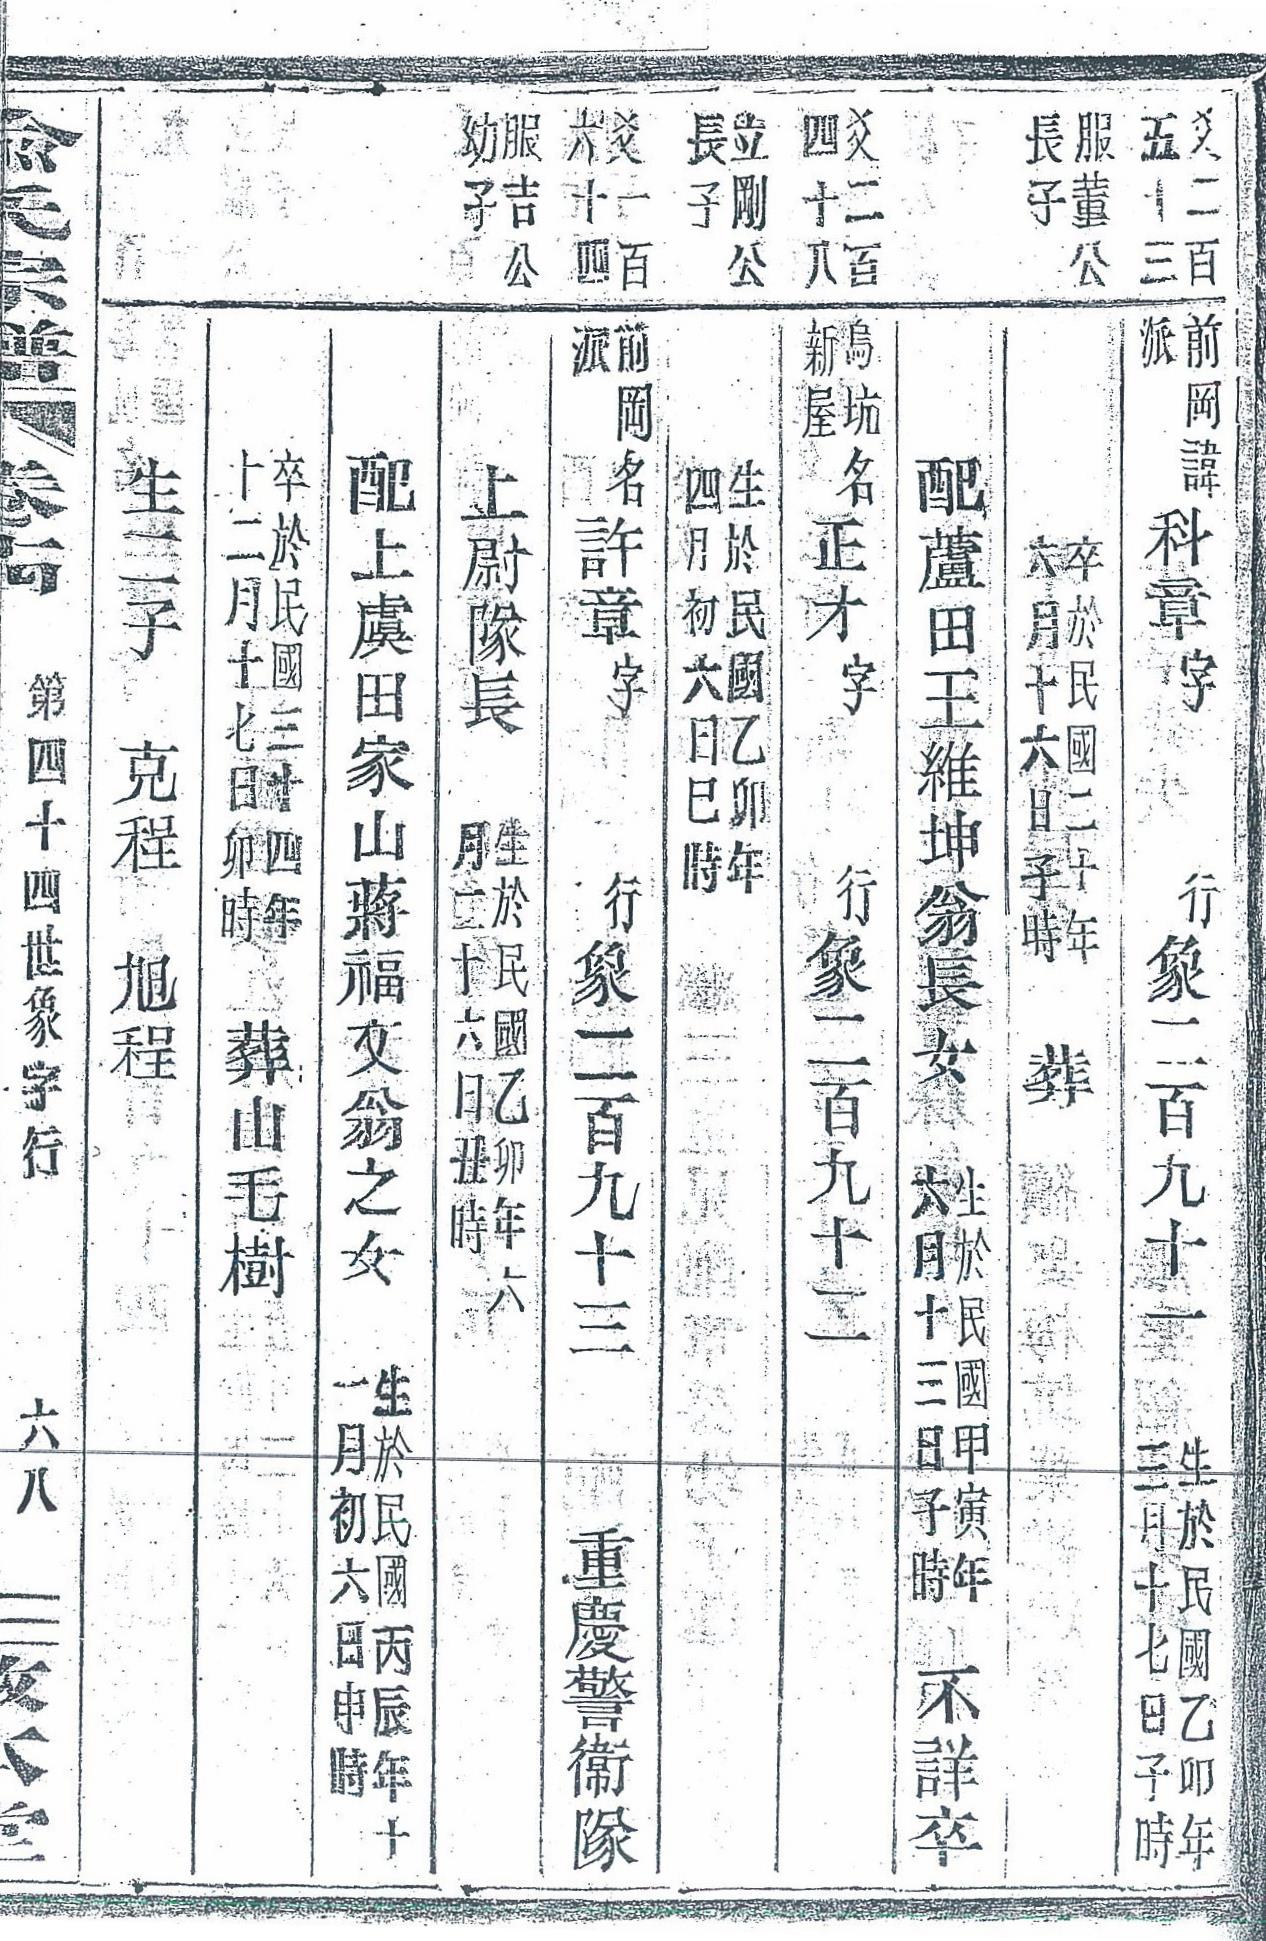 爻二百
五十三
前岡
派
諱科章字 行象二百九十一
生於民國乙卯年
三月十七日子時
服董公
長子
卒於民國二十年
六月十六日子時
葬
配蘆田王維坤翁長女
生於民國甲寅年
六月十三日子時
不詳卒
爻二百
四十八
烏坑
新屋
名正才字 行象二百九十二
立剛公
長子
生於民國乙卯年
四月初六日巳時
爻一百
六十四
前岡
派
名許章字 行象二百九十三 重慶警衞隊
服吉公
幼子
上尉隊長
生於民國乙卯年六
月二十六日丑時
配上虞田家山蔣福文翁之女
生於民國丙辰年十
一月初六日申時
卒於民國三十四年
十二月十七日卯時
葬山毛樹
生二子 克程 旭程
氏宗譜 卷 第四十四世象字行 六八